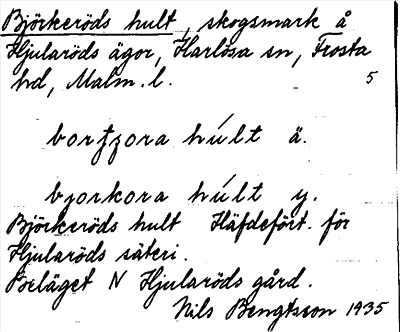 Björkeröds hult, skogsmark å
Hjularöds ägor, Harlösa sn, Frosta
hd, Malm. l. 5
hult ä.
bjorkora hult y.
Björkeröds hult Häfdeført. för
Hjularöds säteri.
Beläget N Hjularöds gård.
Nils Bengtsson 1935